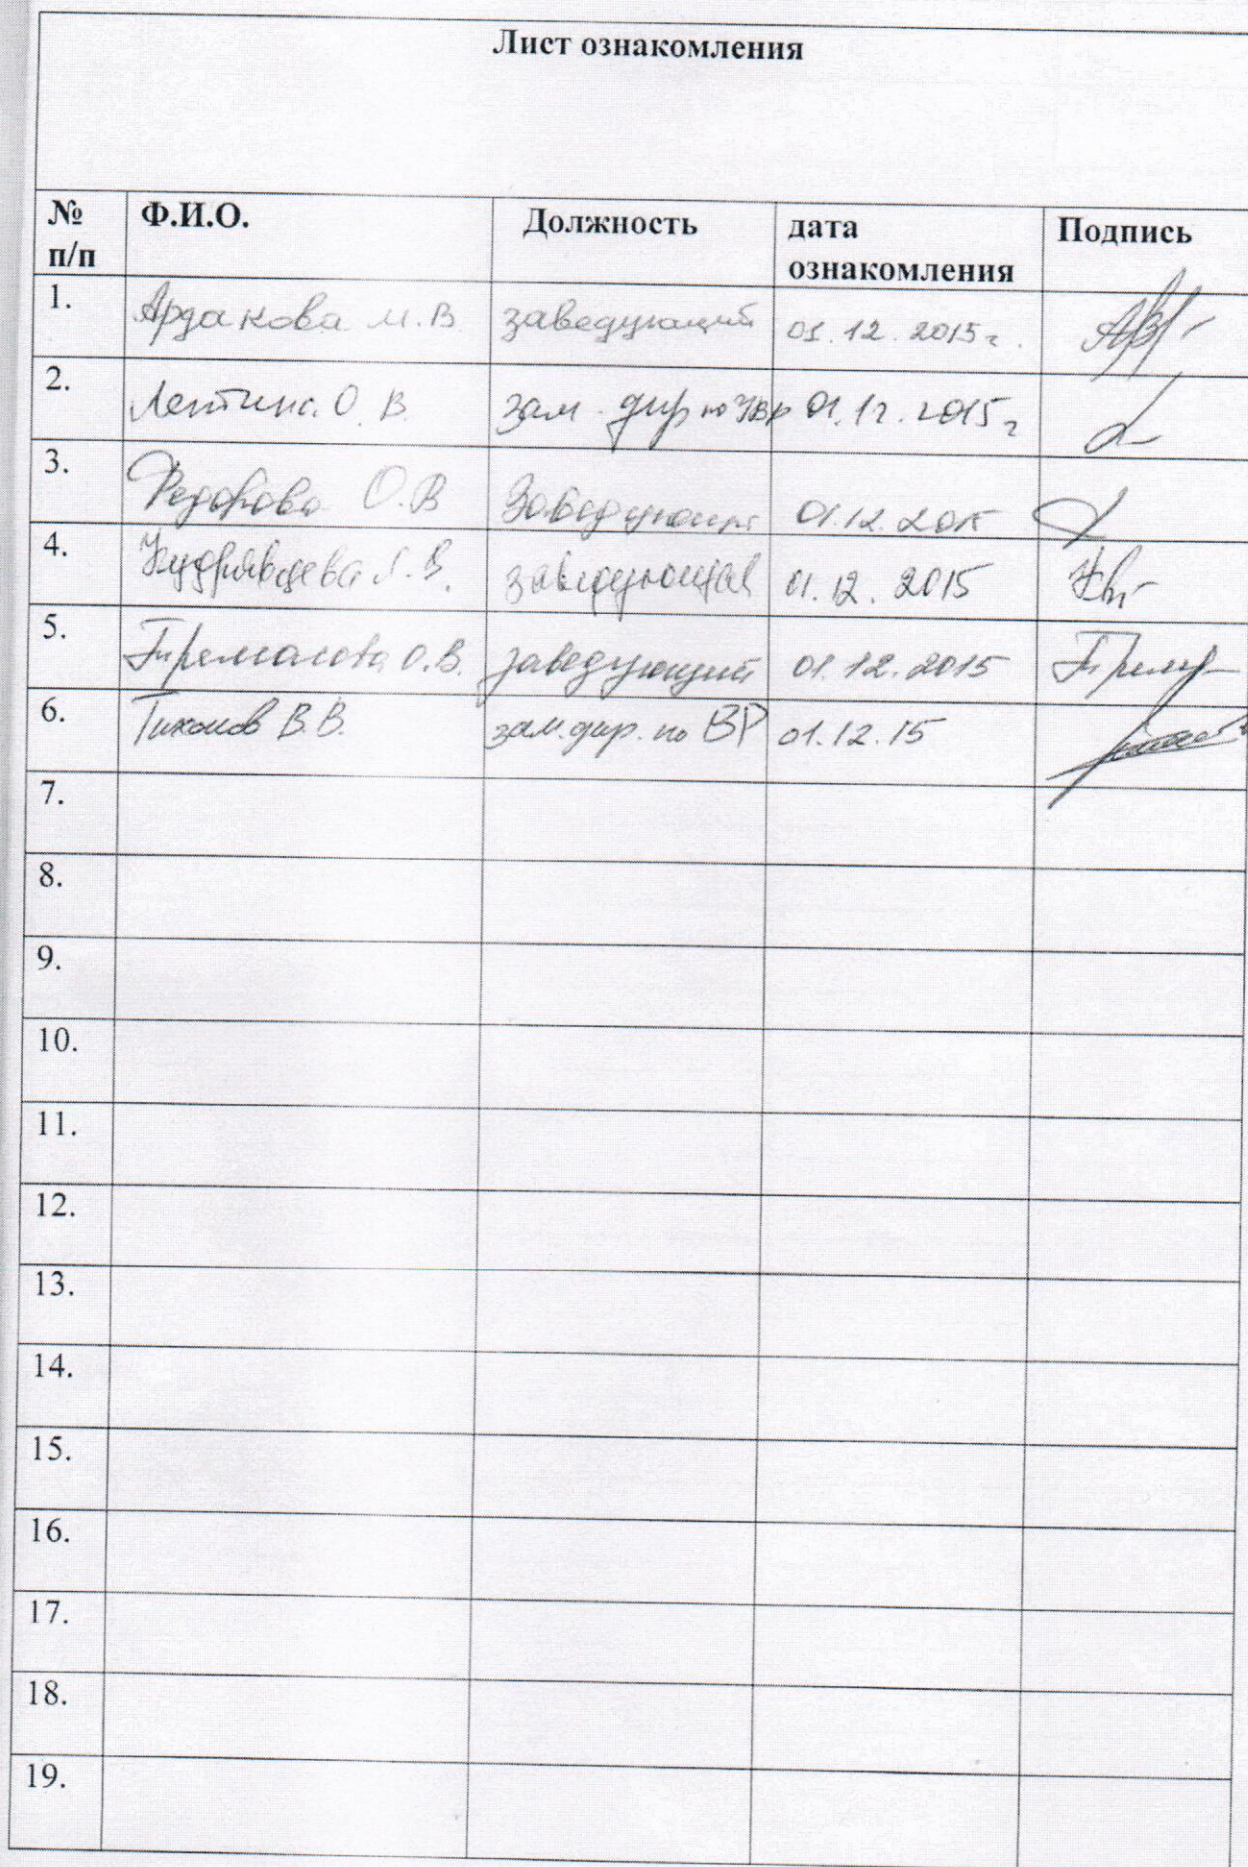 Лист ознакомления
№ п/п Ф.И.О. Должность дата ознакомления Подпись
1. Ардакова М.В. заведующий 01.12.2015г.
2. О.В. зам. дир по УВР 01.12.2015г
3. Федорова О.В Заведующий 01.12.2015
4. Кудрявцева В. заведующая 01.12.2015
5. О.В. заведующий 01.12.2015
6. Тихонов В.В. зам. дир. по ВР 01.12.15
7.
8.
9.
10.
11.
12.
13.
14.
15.
16.
17.
18.
19.